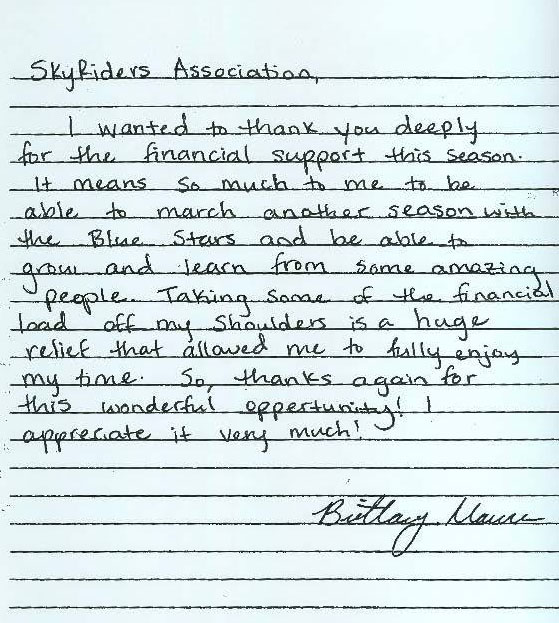 SkyRiders Association,
I wanted to thank you deeply
for the financial support this season.
It means so much to me to be
able to march another season with
the Blue Stars and be able to
grow and learn from some amazing
people. Taking some of the financial
load off my shoulders is a huge
relief that allowed me to fully enjoy
my time. So, thanks again for
this wonderful oppertunity! I
appreciate it very much!